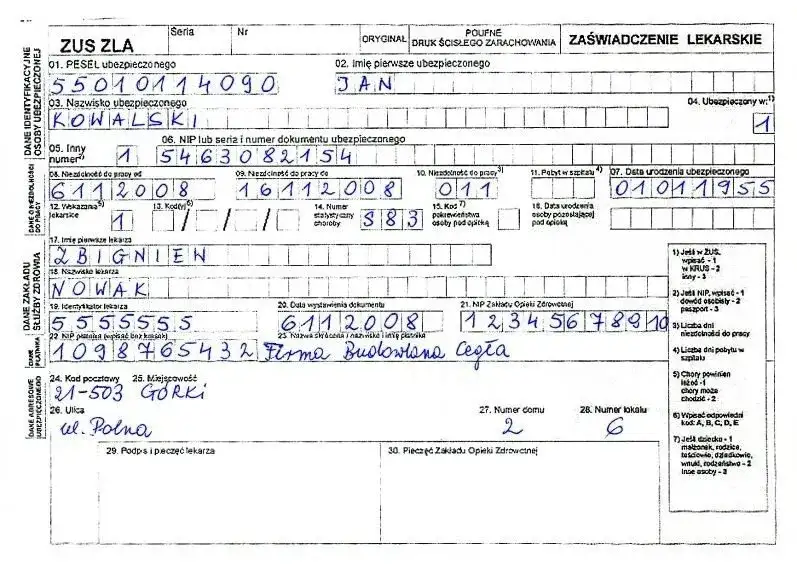 ZUS ZLA Seria Nr ORYGINAŁ POUFNE DRUK ŚCISŁEGO ZARACHOWANIA ZAŚWIADCZENIE LEKARSKIE
DANE IDENTYFIKACYJNE OSOBY UBEZPIECZONEJ
01. PESEL ubezpieczonego 02. Imię pierwsze ubezpieczonego
55010114090 JAN
03. Nazwisko ubezpieczonego 04. Ubezpieczony w:1)
KOWALSKI 1
06. NIP lub seria i numer dokumentu ubezpieczonego
05. Inny numer2) 1 5463082154
DANE O NIEZDOLNOŚCI DO PRACY
08. Niezdolność do pracy od 09. Niezdolność do pracy do 10. Niezdolność do pracy3) 11. Pobyt w szpitalu 4) 07. Data urodzenia ubezpieczonego
6112008 16112008 011 01011955
12. Wskazania5) lekarskie 1 13. Kod(y)6) / / / 14. Numer statystyczny choroby 883 15. Kod 7) pokrewieństwa osoby pod opieką 16. Data urodzenia osoby pozostającej pod opieką
DANE ZAKŁADU SŁUŻBY ZDROWIA
17. Imię pierwsze lekarza
ZBIGNIEW
18. Nazwisko lekarza
NOWAK
19. Identyfikator lekarza 20. Data wystawienia dokumentu 21. NIP Zakładu Opieki Zdrowotnej
5555555 6112008 12345678910
DANE PŁATNIKA
22. NIP płatnika (wpisać bez kresek) 23. Nazwa skrócona / nazwisko i imię płatnika
1098765432 Firma Budowlana Cegła
DANE ADRESOWE UBEZPIECZONEGO
24. Kod pocztowy 25. Miejscowość
21-503 GÓRKI
26. Ulica 27. Numer domu 28. Numer lokalu
ul. Polna 2 6
29. Podpis i pieczęć lekarza 30. Pieczęć Zakładu Opieki Zdrowotnej
1) Jeśli w ZUS,
wpisać - 1
w KRUS - 2
inny - 3
2) Jeśli NIP, wpisać - 1
dowód osobisty - 2
paszport - 3
3) Liczba dni
niezdolności do pracy
4) Liczba dni pobytu w
szpitalu
5) Chory powinien
leżeć -1
chory może
chodzić - 2
6) Wpisać odpowiedni
kod: A, B, C, D, E
7) Jeśli dziecko - 1
małżonek, rodzice,
teściowie, dziadkowie,
wnuki, rodzeństwo - 2
inne osoby - 3